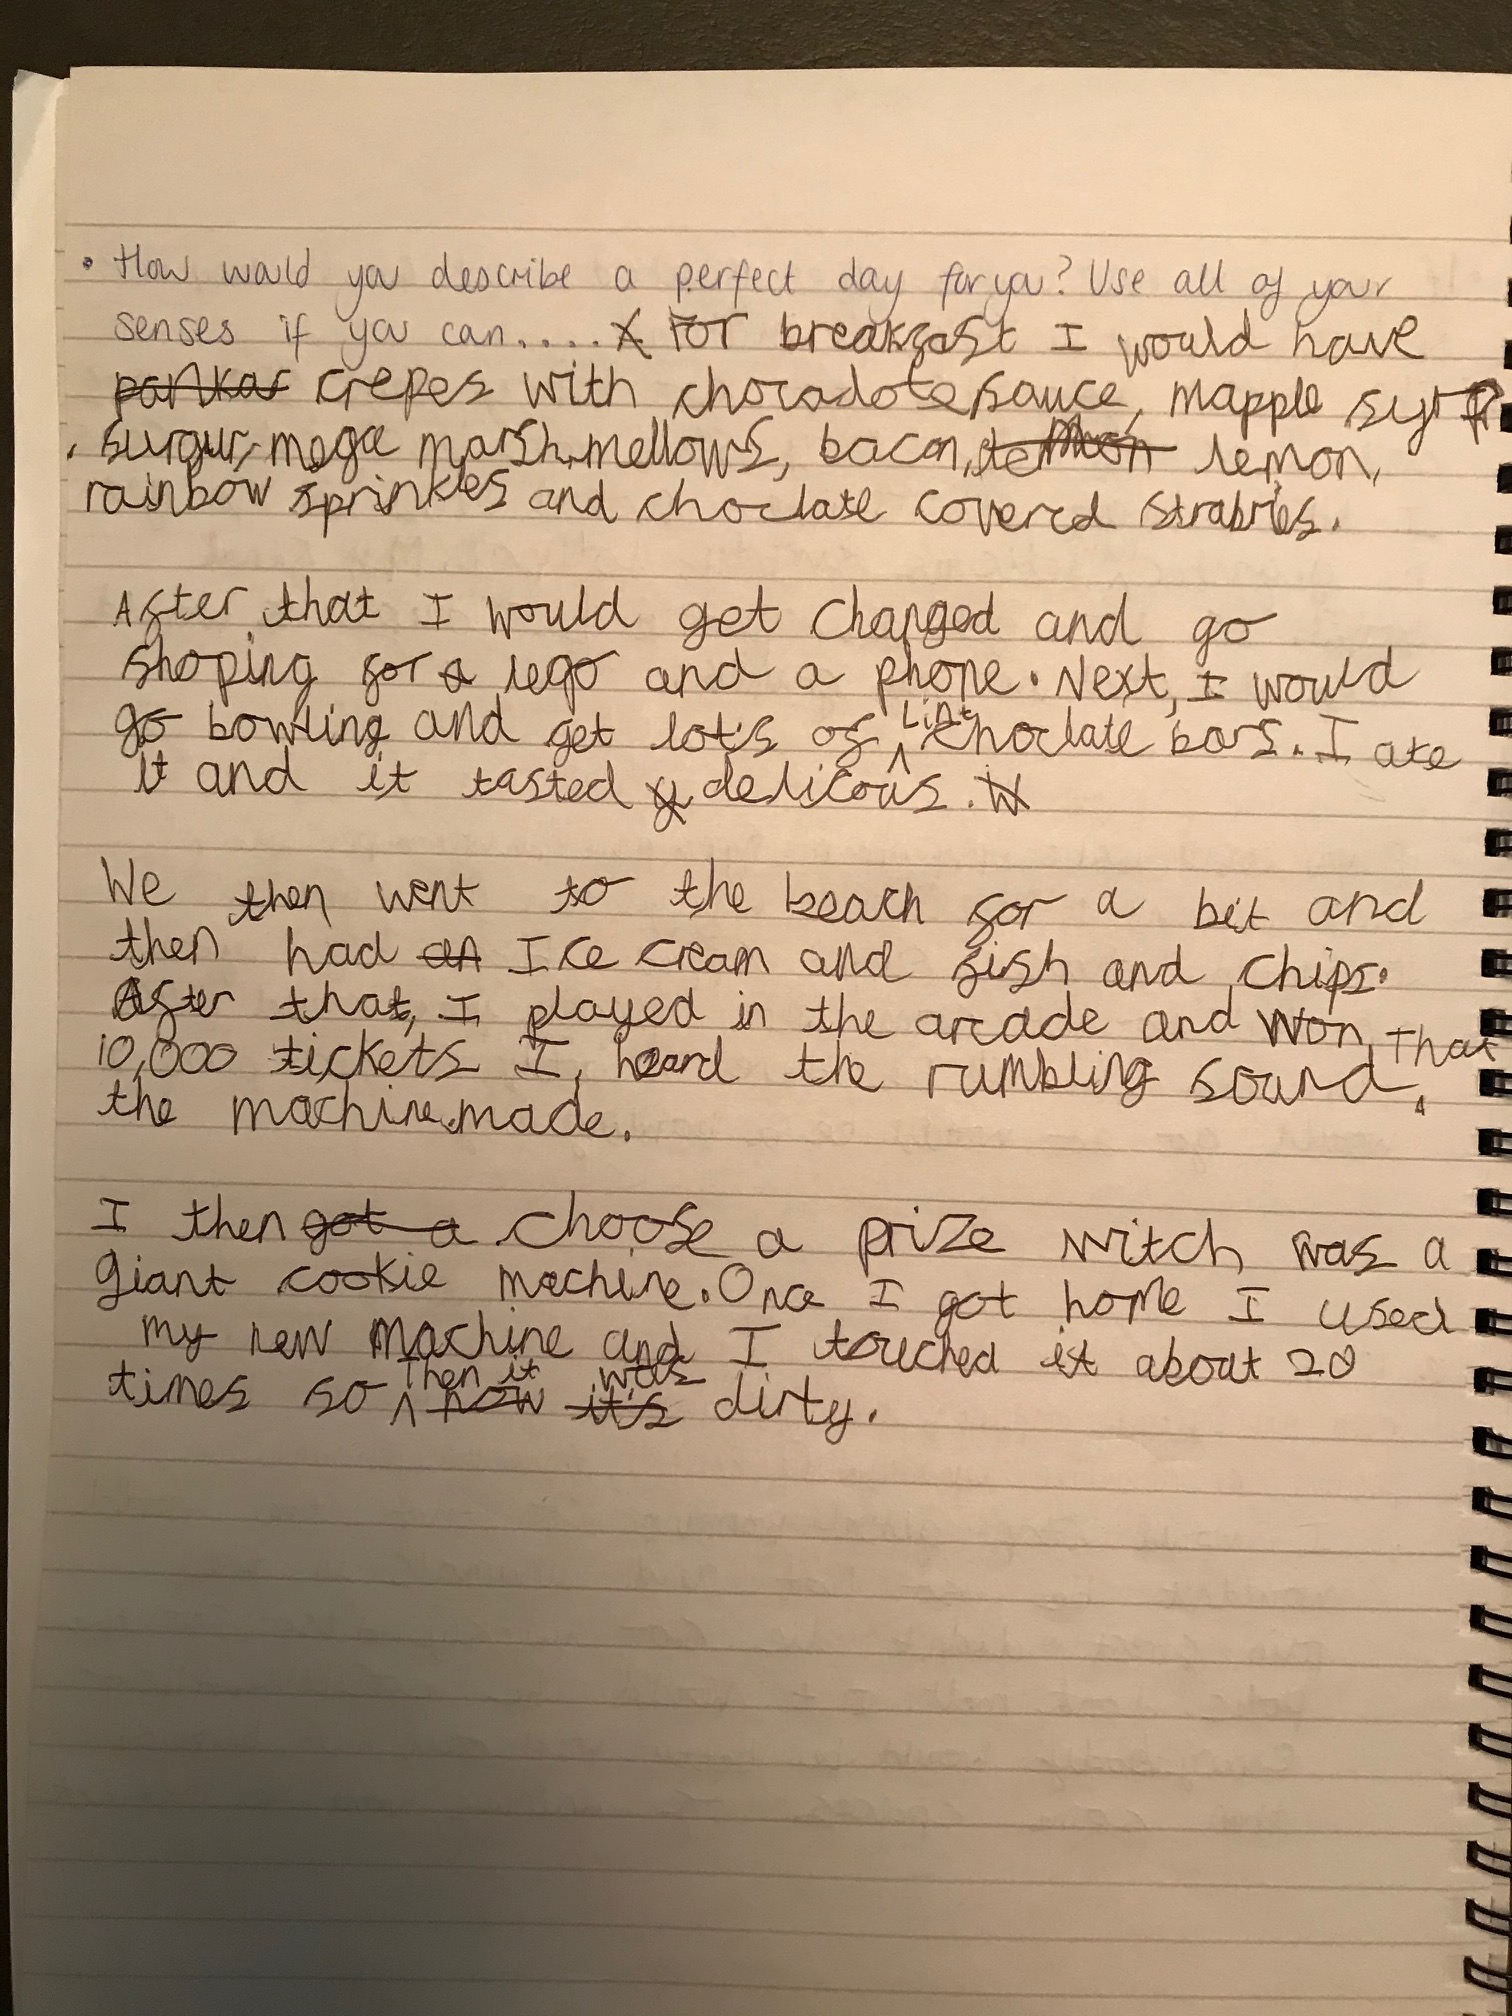 • How would you describe a perfect day for you? Use all of your
senses if you can.... For breakfast I would have
pankar crepes with chocadote sauce, mapple syrp
, surgur, mega marshmellows, bacon, lemon,
rainbow sprinkles and choclate covered strabries.
After that I would get changed and go
shoping for a lego and a phone. Next, I would
go bowling and get lot's of Lint choclate bars. I ate
it and it tasted delicous.
We then went to the beach for a bit and
then had an Ice cream and fish and chips.
After that, I played in the arcade and won
10,000 tickets I, heard the rumbling sound, That
the machine made.
I then got a choose a prize witch was a
giant cookie machine. Once I got home I used
my new machine and I touched it about 20
times so Then it was now it's dirty.